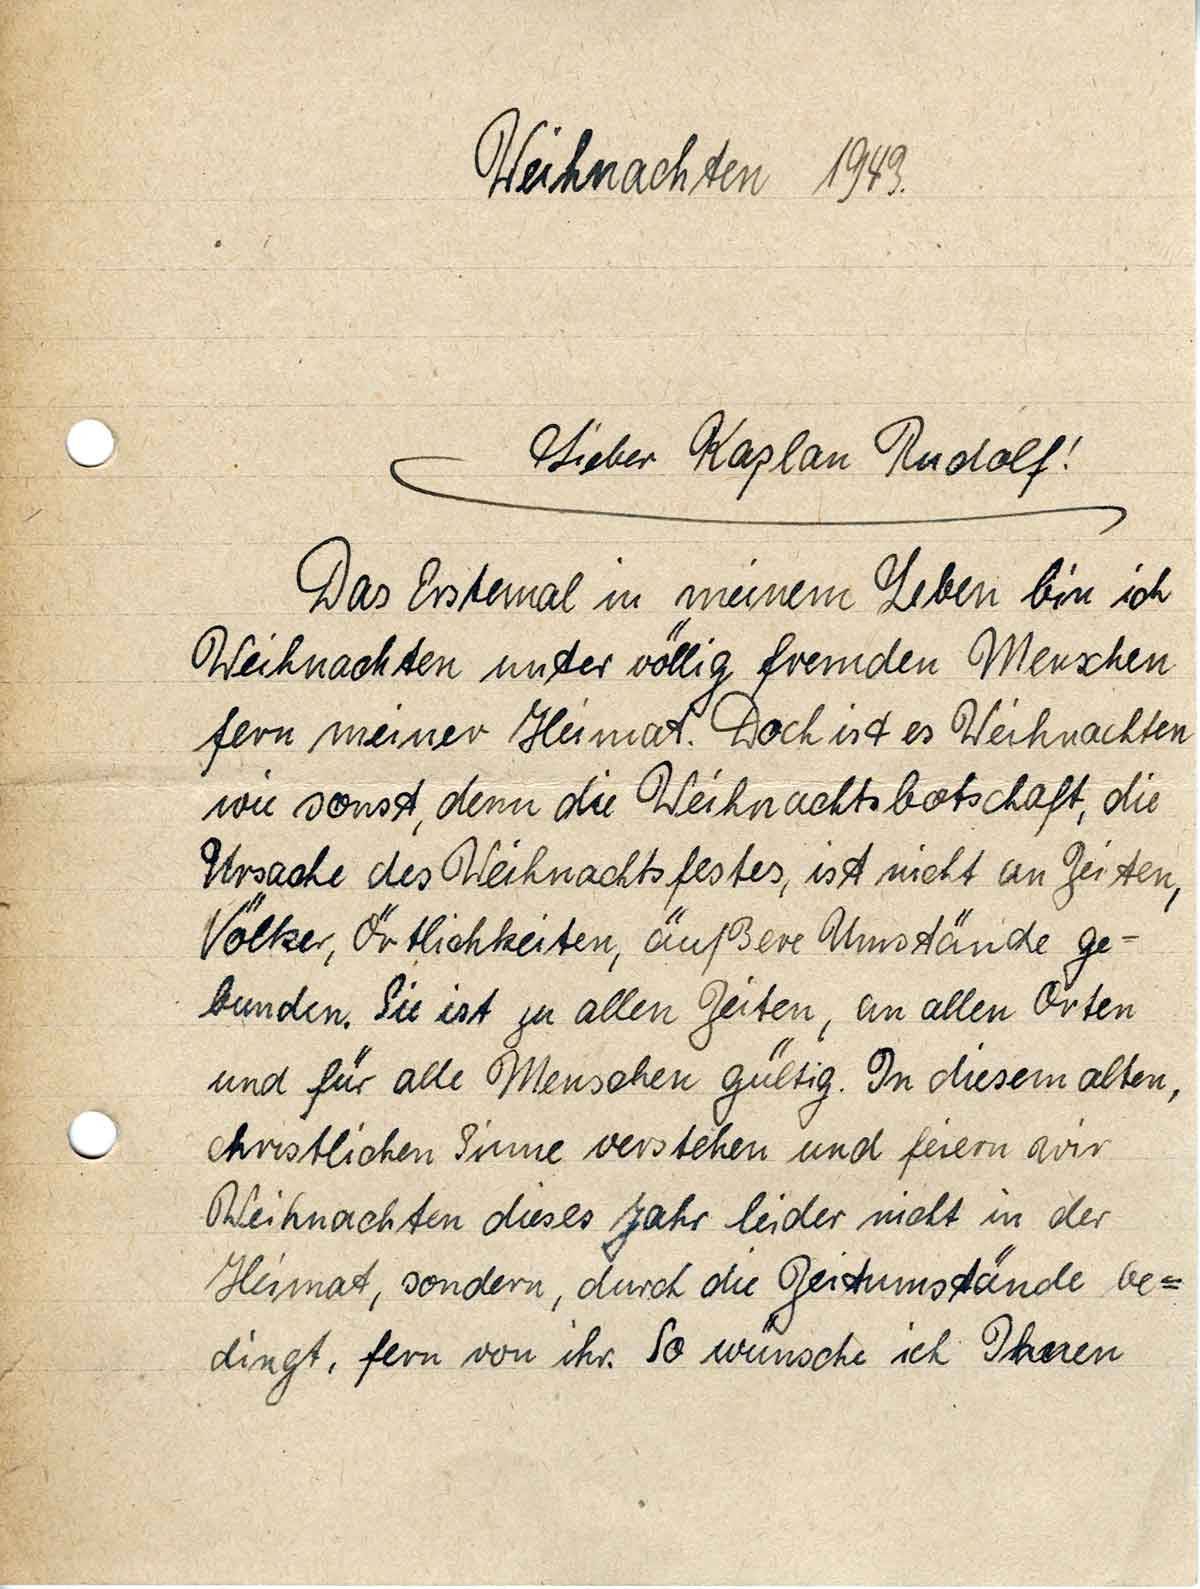 Weihnachten 1943.
Lieber Kaplan Rudolf!
Das Erstemal in meinem Leben bin ich
Weihnachten unter völlig fremden Menschen
fern meiner Heimat. Doch ist es Weihnachten
wie sonst, denn die Weihnachtsbotschaft, die
Ursache des Weihnachtsfestes, ist nicht an Zeiten,
Völker, Örtlichkeiten, äußere Umstände ge-
bunden. Sie ist zu allen Zeiten, an allen Orten
und für alle Menschen gültig. In diesem alten,
christlichen Sinne verstehen und feiern wir
Weihnachten dieses Jahr leider nicht in der
Heimat, sondern, durch die Zeitumstände be=
dingt, fern von ihr. So wünsche ich Ihnen